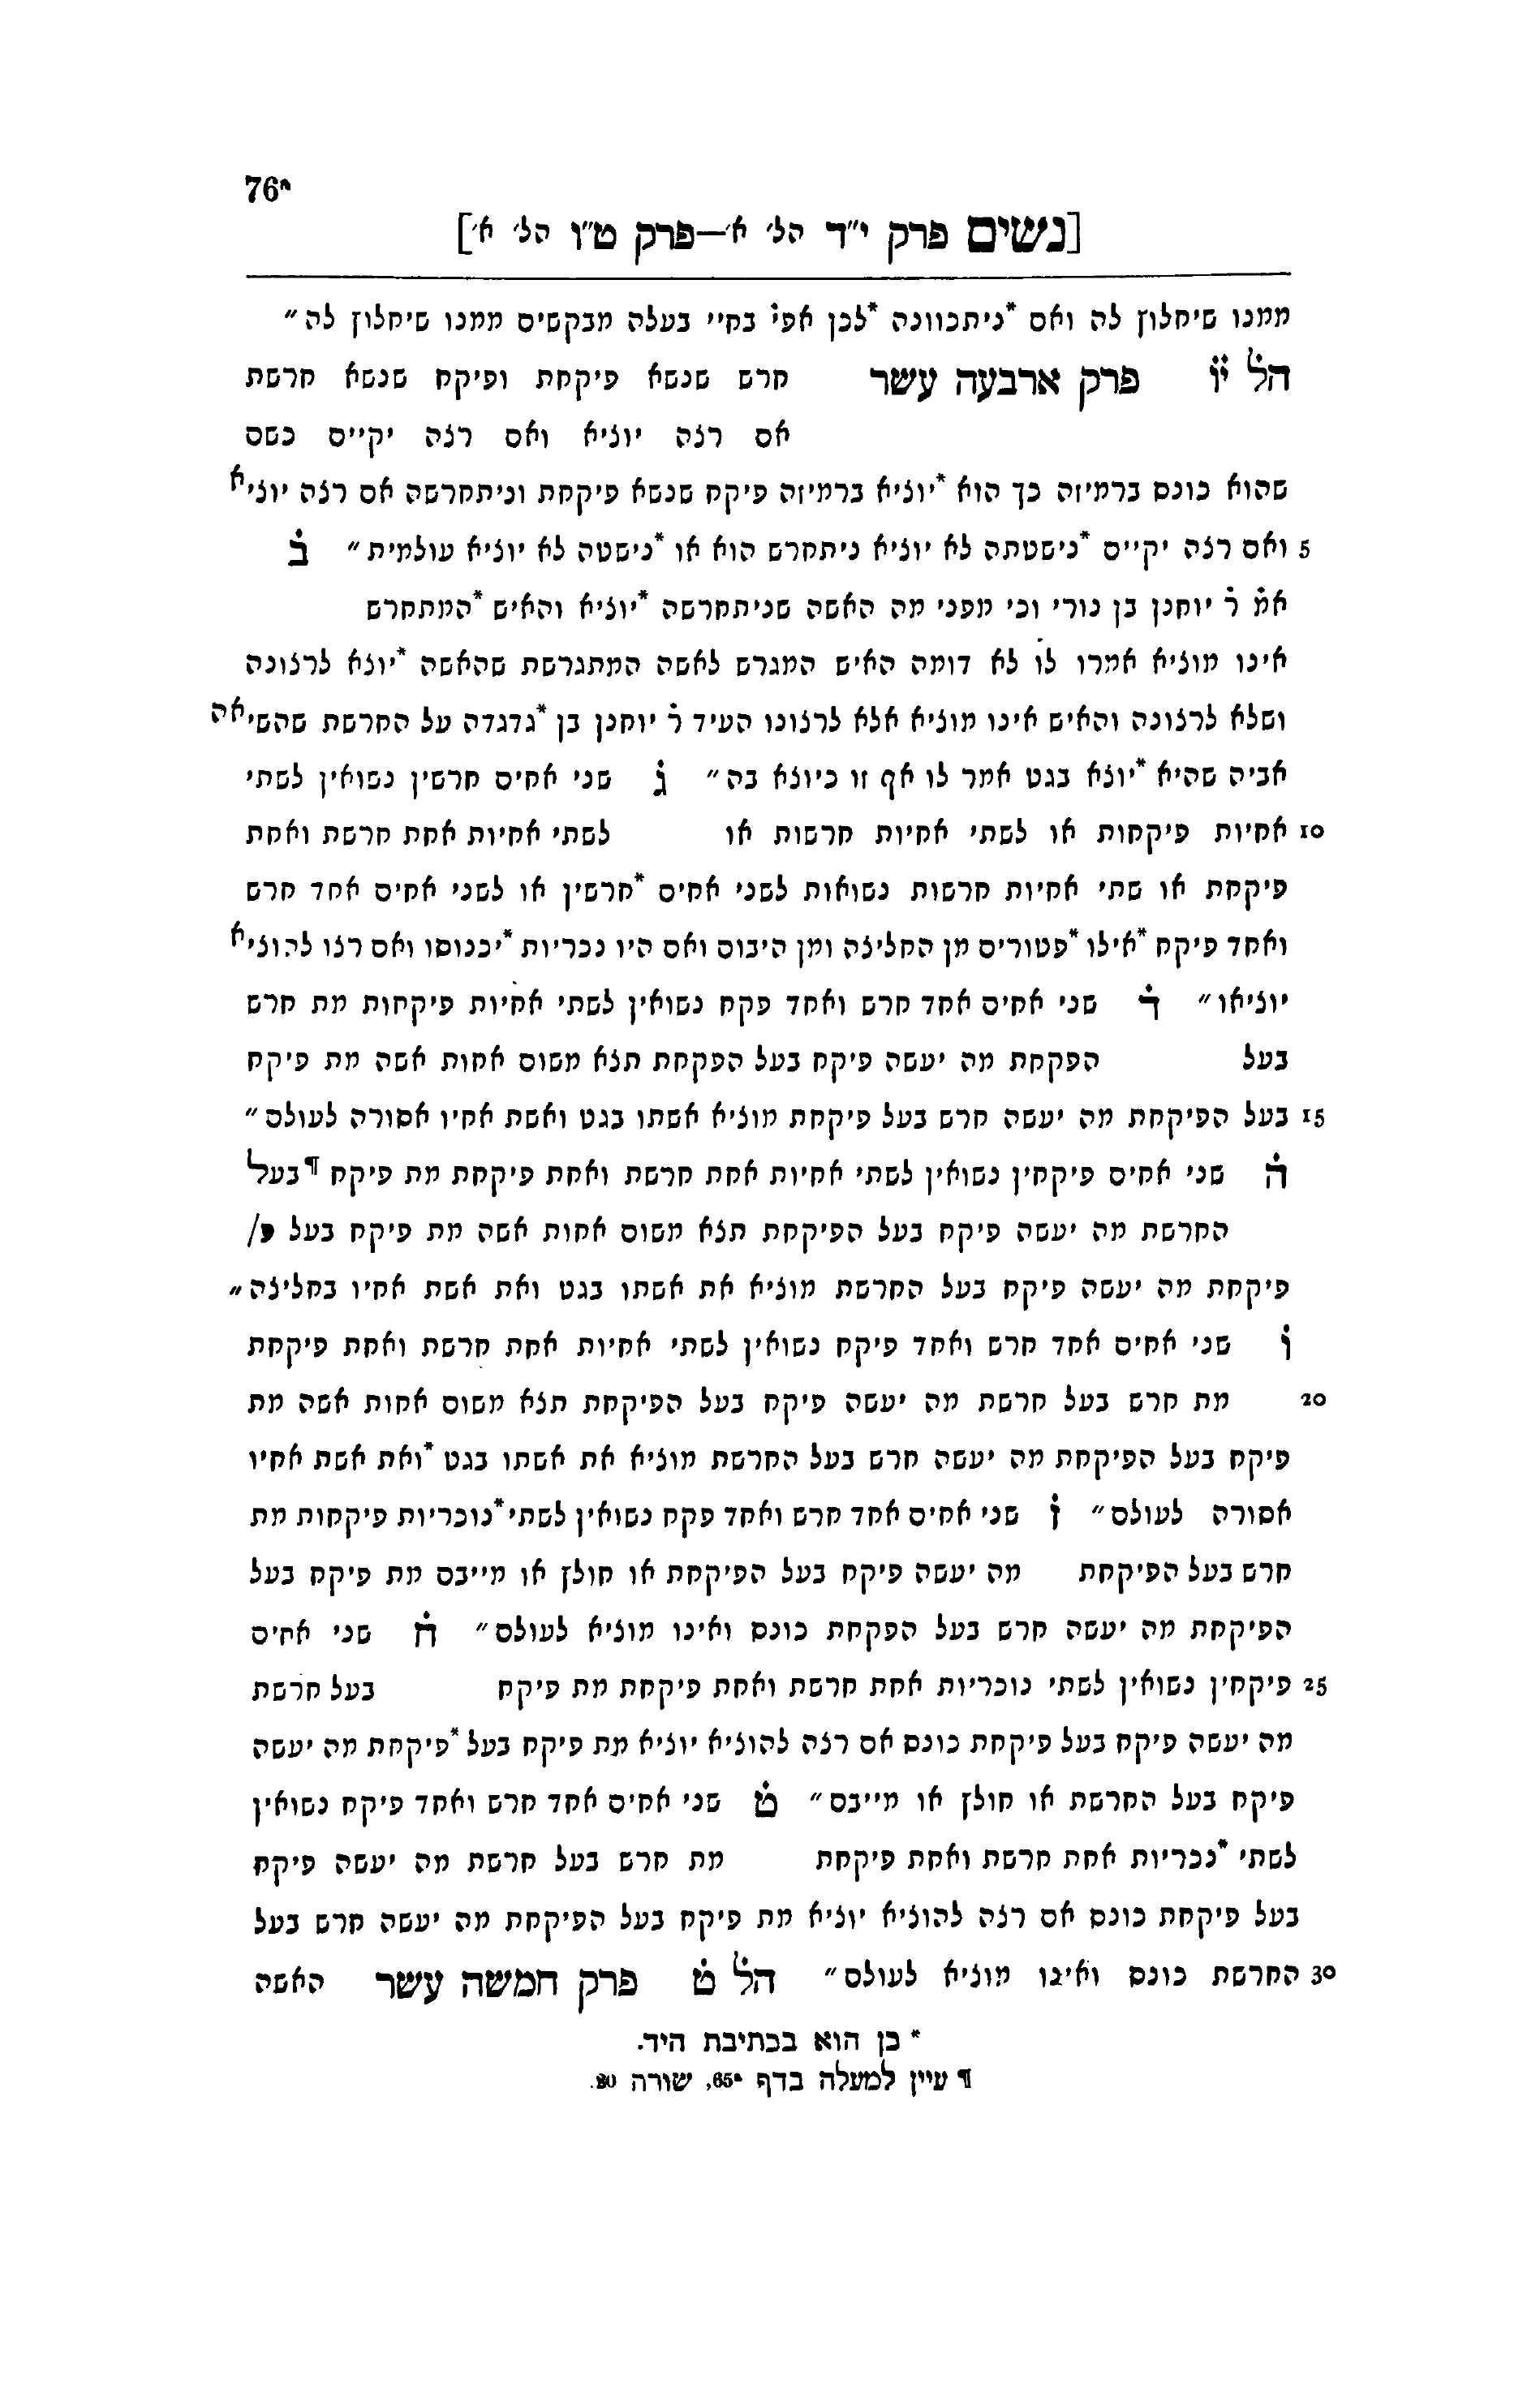 76ª
[נשים פרק י״ד הל׳ א׳—פרק ט״ו הל׳ א׳]
ממנו שיחלוץ לה ואם *ניתכוונה *לכן אפי׳ בחיי בעלה מבקשים ממנו שיחלוץ לה״
הל׳ יו פרק ארבעה עשר חרש שנשא פיקחת ופיקח שנשא חרשת
אם רצה יוציא ואם רצה יקיים כשם
שהוא כונס ברמיזה כך הוא *יוציא ברמיזה פיקח שנשא פיקחת וניתחרשה אם רצה יוציא
5 ואם רצה יקיים *נישטתה לא יוציא ניתחרש הוא או *נישטה לא יוציא עולמית״ ב
אמ׳ ר׳ יוחנן בן נורי וכי מפני מה האשה שניתחרשה *יוציא והאיש *המתחרש
אינו מוציא אמרו לו לא דומה האיש המגרש לאשה המתגרשת שהאשה *יוצא לרצונה
ושלא לרצונה והאיש אינו מוציא אלא לרצונו העיד ר׳ יוחנן בן *גדגדה על החרשת שהשיאה
אביה שהיא *יוצא בגט אמר לו אף זו כיוצא בה״ ג שני אחים חרשין נשואין לשתי
10 אחיות פיקחות או לשתי אחיות חרשות או לשתי אחיות אחת חרשת ואחת
פיקחת או שתי אחיות חרשות נשואות לשני אחים *חרשין או לשני אחים אחד חרש
ואחד פיקח *אילו *פטורים מן החליצה ומן היבום ואם היו נכריות *יכנוסו ואם רצו להוציא
יוציאו״ ד שני אחים אחד חרש ואחד פקח נשואין לשתי אחיות פיקחות מת חרש
בעל הפקחת מה יעשה פיקח בעל הפקחת תצא משום אחות אשה מת פיקח
15 בעל הפיקחת מה יעשה חרש בעל פיקחת מוציא אשתו בגט ואשת אחיו אסורה לעולם״
ה שני אחים פיקחין נשואין לשתי אחיות אחת חרשת ואחת פיקחת מת פיקח ¶בעל
החרשת מה יעשה פיקח בעל הפיקחת תצא משום אחות אשה מת פיקח בעל פ/
פיקחת מה יעשה פיקח בעל החרשת מוציא את אשתו בגט ואת אשת אחיו בחליצה״
ו שני אחים אחד חרש ואחד פיקח נשואין לשתי אחיות אחת חרשת ואחת פיקחת
20 מת חרש בעל חרשת מה יעשה פיקח בעל הפיקחת תצא משום אחות אשה מת
פיקח בעל הפיקחת מה יעשה חרש בעל החרשת מוציא את אשתו בגט *ואת אשת אחיו
אסורה לעולם״ ז שני אחים אחד חרש ואחד פקח נשואין לשתי *נוכריות פיקחות מת
חרש בעל הפיקחת מה יעשה פיקח בעל הפיקחת או חולץ או מייבם מת פיקח בעל
הפיקחת מה יעשה חרש בעל הפקחת כונס ואינו מוציא לעולם״ ח שני אחים
25 פיקחין נשואין לשתי נוכריות אחת חרשת ואחת פיקחת מת פיקח בעל חרשת
מה יעשה פיקח בעל פיקחת כונס אם רצה להוציא יוציא מת פיקח בעל *פיקחת מה יעשה
פיקח בעל החרשת או חולץ או מייבם״ ט שני אחים אחד חרש ואחד פיקח נשואין
לשתי *נכריות אחת חרשת ואחת פיקחת מת חרש בעל חרשת מה יעשה פיקח
בעל פיקחת כונס אם רצה להוציא יוציא מת פיקח בעל הפיקחת מה יעשה חרש בעל
30 החרשת כונס ואינו מוציא לעולם״ הל׳ ט פרק חמשה עשר האשה
* כן הוא בכתיבת היד.
¶ עיין למעלה בדף 65ª, שורה 20.